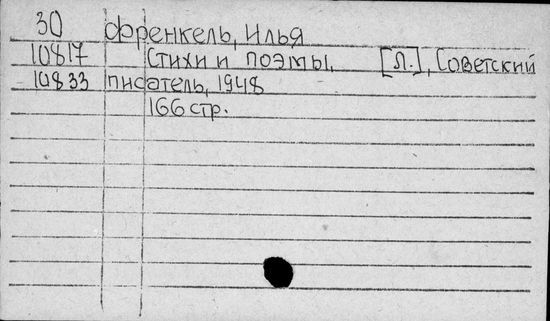 30 Френкель, Илья
10817 Стихи и поэмы. [Л.], Советский
10833 писатель, 1948
166 стр.